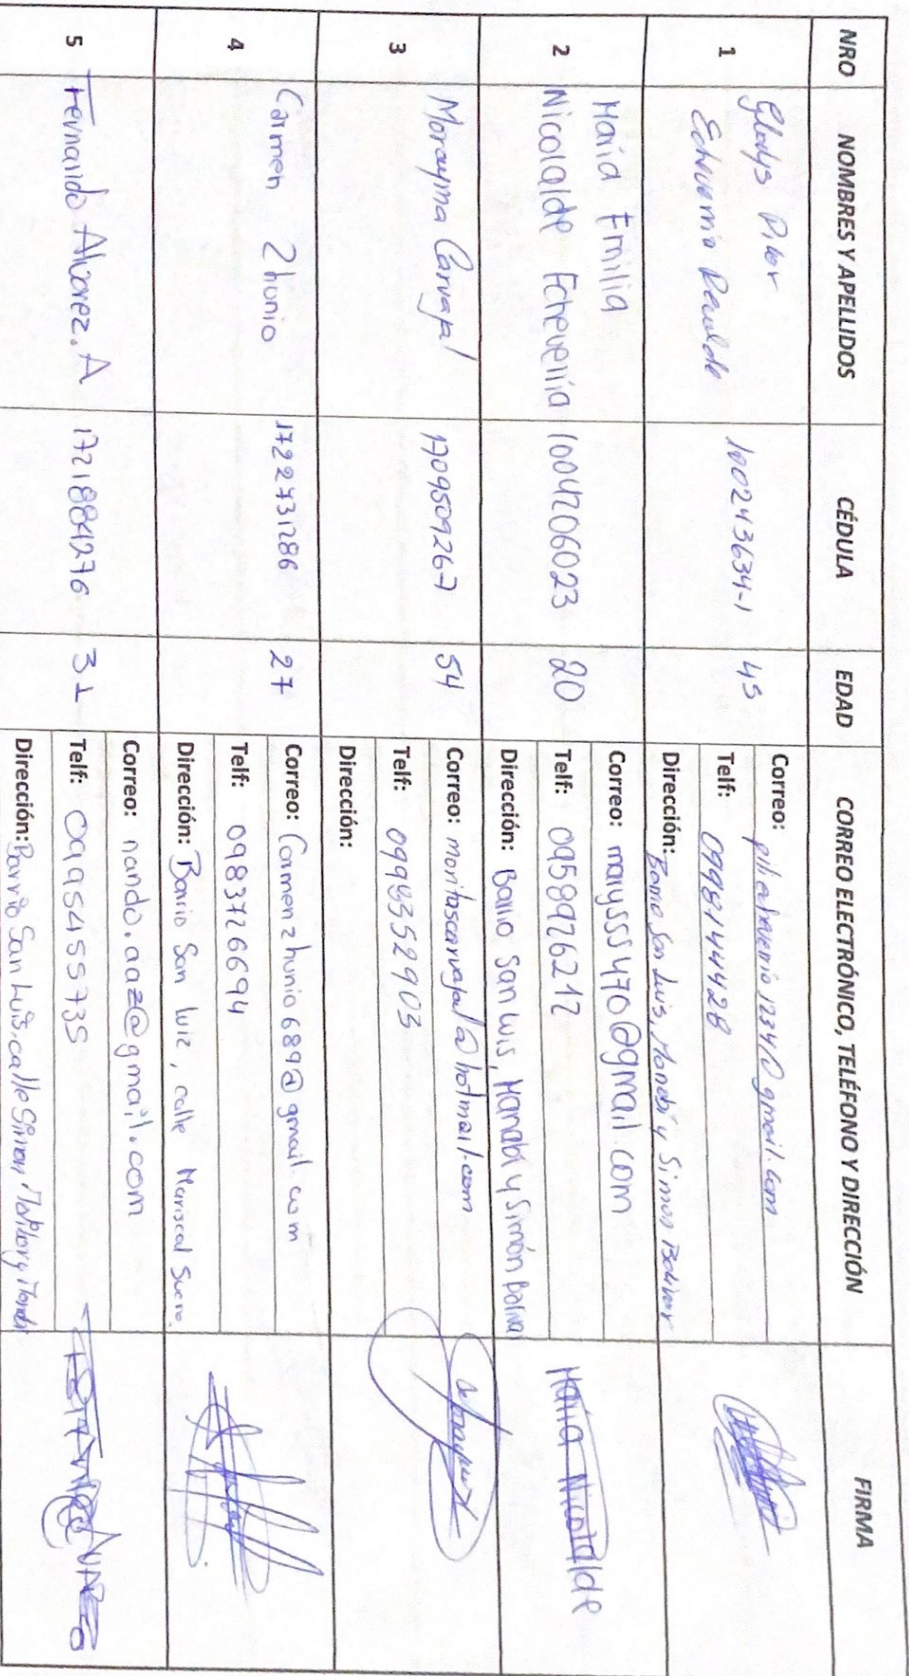 NRO NOMBRES Y APELLIDOS CÉDULA EDAD CORREO ELECTRÓNICO, TELÉFONO Y DIRECCIÓN FIRMA
1
Gladys Pilar
Echeverría Recalde
100243634-1
45
Correo:
Telf: 0998144428
Dirección: Barrio San Luis, Manabí y Simon Bolívar
2
María Emilia
Nicolalde Echeverría
1004206023
20
Correo: marysss470@gmail.com
Telf: 0958926212
Dirección: Barrio San Luis, Manabí y Simón Bolívar
María Nicolalde
3
Morayma Carvajal
1709509267
54
Correo: moritascarvajal@hotmail.com
Telf: 0998352903
Dirección:
4
Carmen Zhunio
1722731286
27
Correo: Carmenzhunio689@gmail.com
Telf: 0983726694
Dirección: Barrio San luiz, calle Mariscal Sucre.
5
Fernando Alvarez. A
1721884276
31
Correo: nando.aaz@gmail.com
Telf: 0995455735
Dirección: Barrio San Luis calle Simon y Manabí